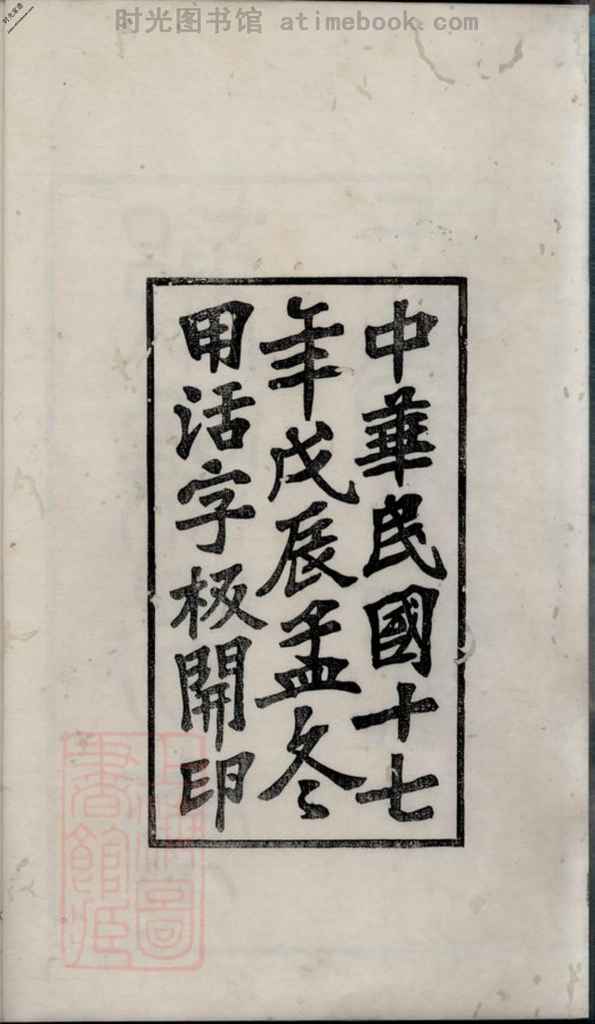 时光图书馆 atimebook.com
中華民國十七
年戊辰孟冬
用活字板開印